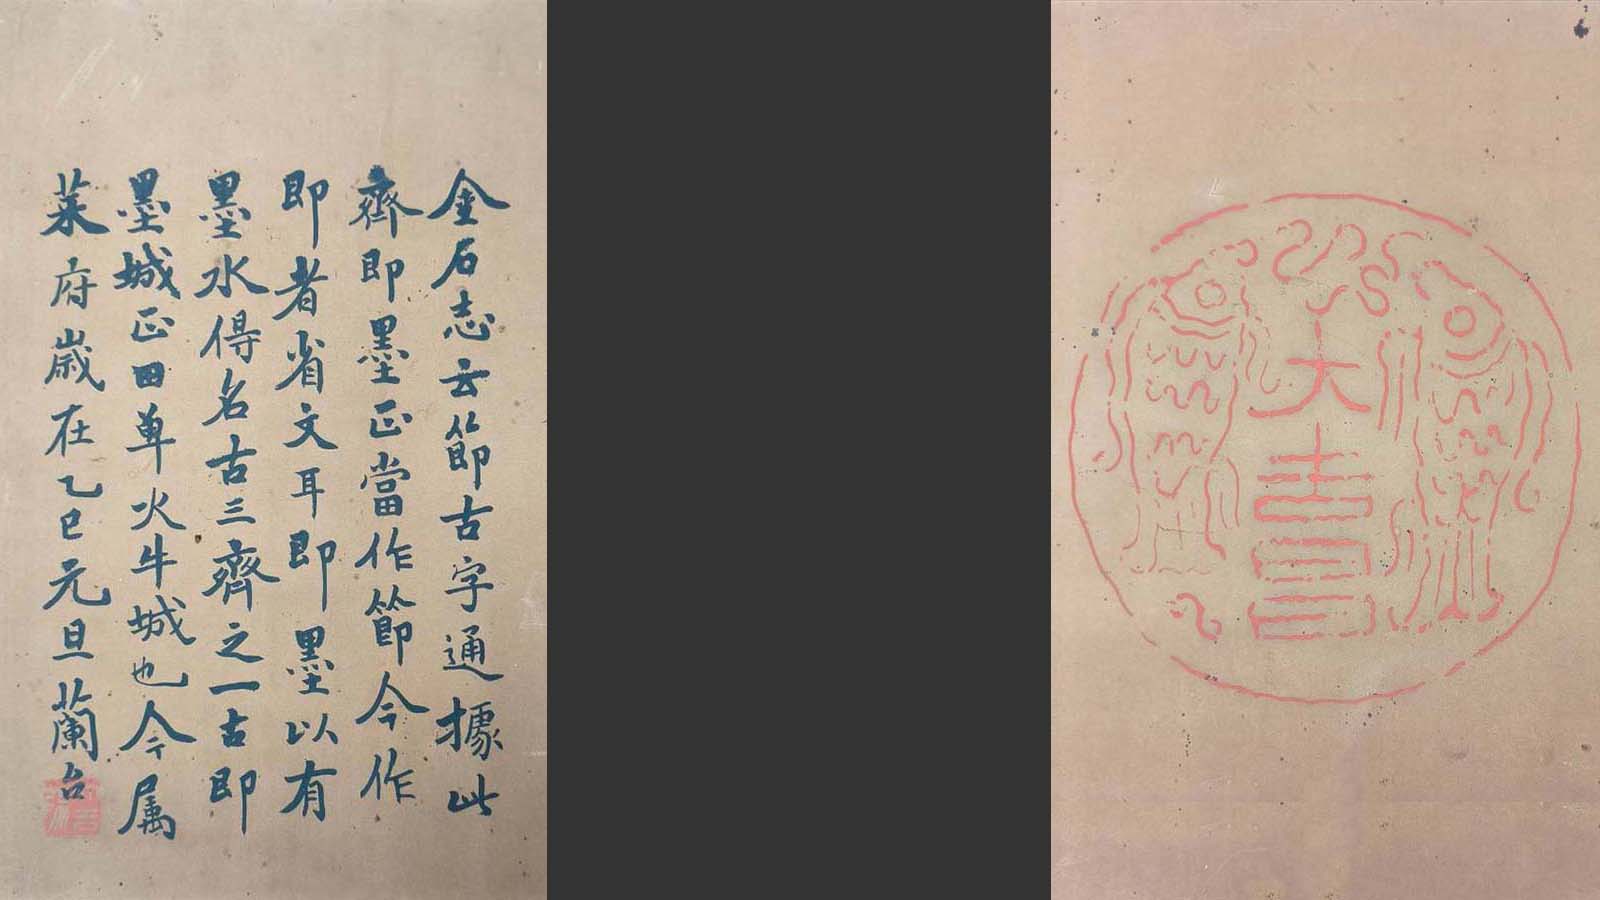 大吉昌
金石志云節古字通據此
齊即墨正當作節今作
即者省文耳即墨以有
墨水得名古三齊之一古即
墨城正田单火牛城也今属
莱府歲在乙巳元旦蘭台